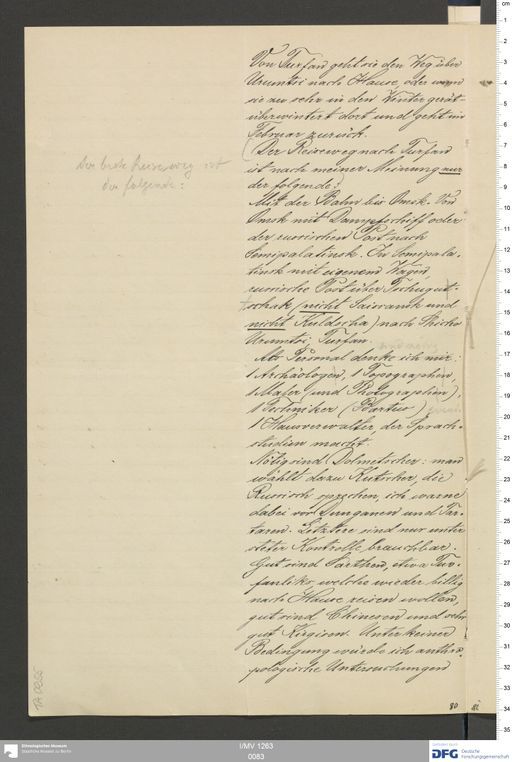 Von Turfan geht sie den Weg über
Urumtsi nach Hause, oder wenn
sie zu sehr in den Winter gerät
überwintert dort und geht im
Februar zurück.
(Der Reiseweg nach Turfan
ist nach meiner Meinung nur
der folgende:
Der beste Reiseweg ist
der folgende:
Mit der Bahn bis Omsk. Von
Omsk mit Dampfschiff oder
der russischen Post nach
Semipalatinsk. In Semipala-
tinsk mit eigenem Wagen
russische Post über Tschugut-
schak (nicht Sairansk und
nicht Kuldscha) nach Shicho
Urumtsi, Turfan.
Als Personal denke ich mir:
1 Archäologen, 1 Topographen,
1 Maler (und Photographen),
1 Techniker (Bartus)
1 Hausverwalter, der Sprach-
studien macht.
Nötig sind Dolmetscher: man
wählt dazu Kutscher, die
Russisch sprechen, ich warne
dabei vor Dunganen und Tar-
taren. Letztere sind nur unter
steter Kontrolle brauchbar.
Gut sind Sarthen, etwa Tur-
fanliks, welche wieder billig
nach Hause reisen wollen,
gut sind Chinesen und sehr
gut Kirgisen. Unter keiner
Bedingung würde ich anthro-
pologische Untersuchungen
80
TA 0255
Ethnologisches Museum
Staatliche Museen zu Berlin
I/MV 1263
0083
gefördert durch
DFG Deutsche
Forschungsgemeinschaft